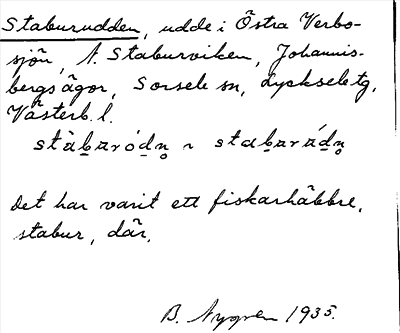 Staburudden, udde i Östra Verbo-
sjön, N. Staburviken, Johannis-
bergs ägor, Sorsele sn, Lycksele tg,
Västerb. l.
stàb̲aród̲n̥ ~ stab̲arád̲n̥
Det har varit ett fiskarhäbbre,
stabur, där.
B. Nygren 1935.